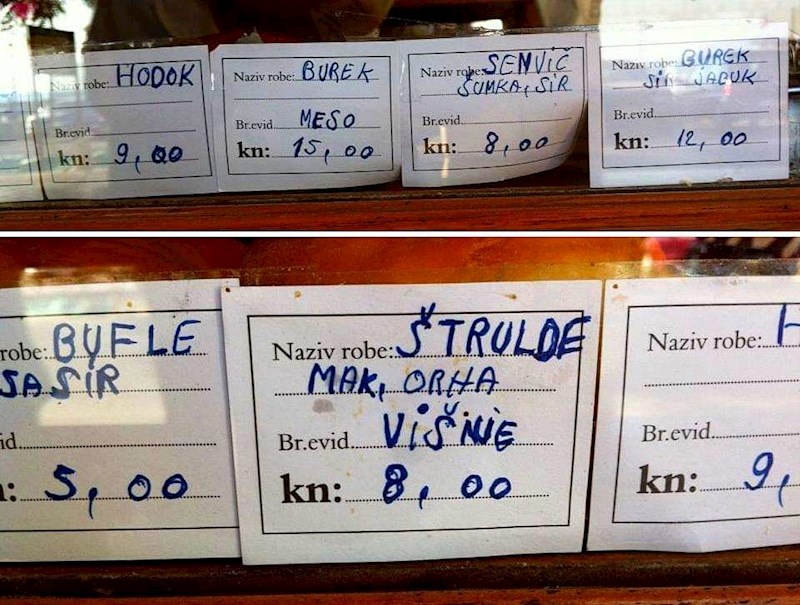 Naziv robe: HODOK
Br.evid.
kn: 9,00
Naziv robe: BUREK
Br.evid. MESO
kn: 15,00
Naziv robe: SEMVIČ
ŠUMKA, SIR
Br.evid.
kn: 8,00
Naziv robe: BUREK
SIR JABUK
Br.evid.
kn: 12,00
robe: BUFLE
SA SIR
id.
: 5,00
Naziv robe: ŠTRULDE
MAK, ORHA
Br.evid. VIŠNJE
kn: 8,00
Naziv robe: H
Br.evid.
kn: 9,